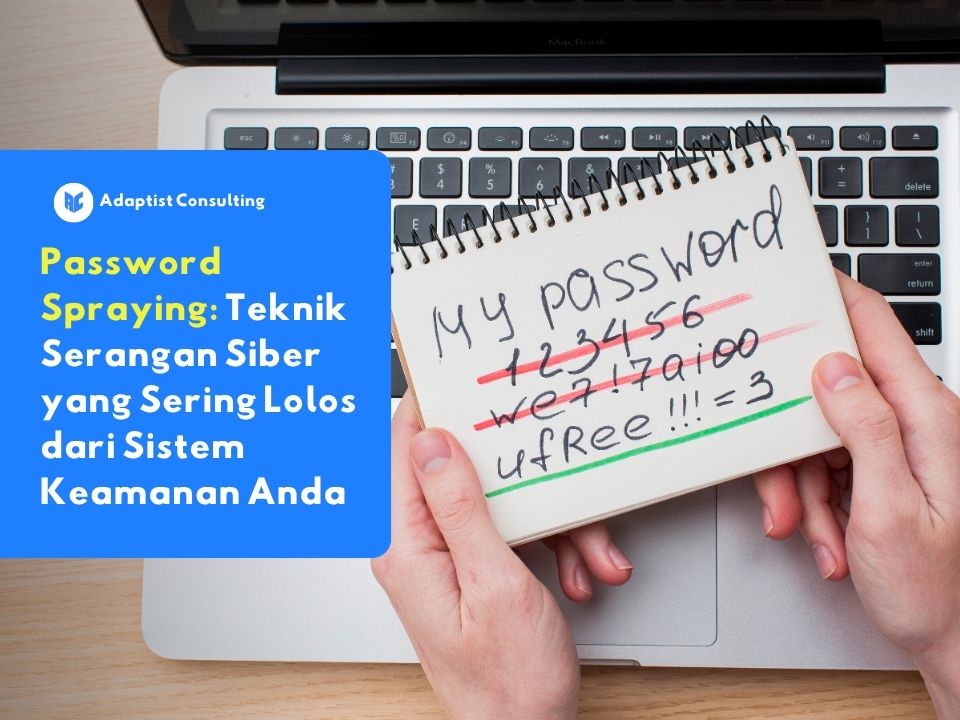 MacBook
Adaptist Consulting
Password
Spraying: Teknik
Serangan Siber
yang Sering Lolos
dari Sistem
Keamanan Anda
My password
123456
we7!7aioo
ufRee!!!=3
esc
F1
F2
F3
F4
F5
F6
F7
F8
F9
F11
F12
$
4
%
5
^
6
&
+
=
delete
E
R
{
[
}
]
|
\
enter
return
shift